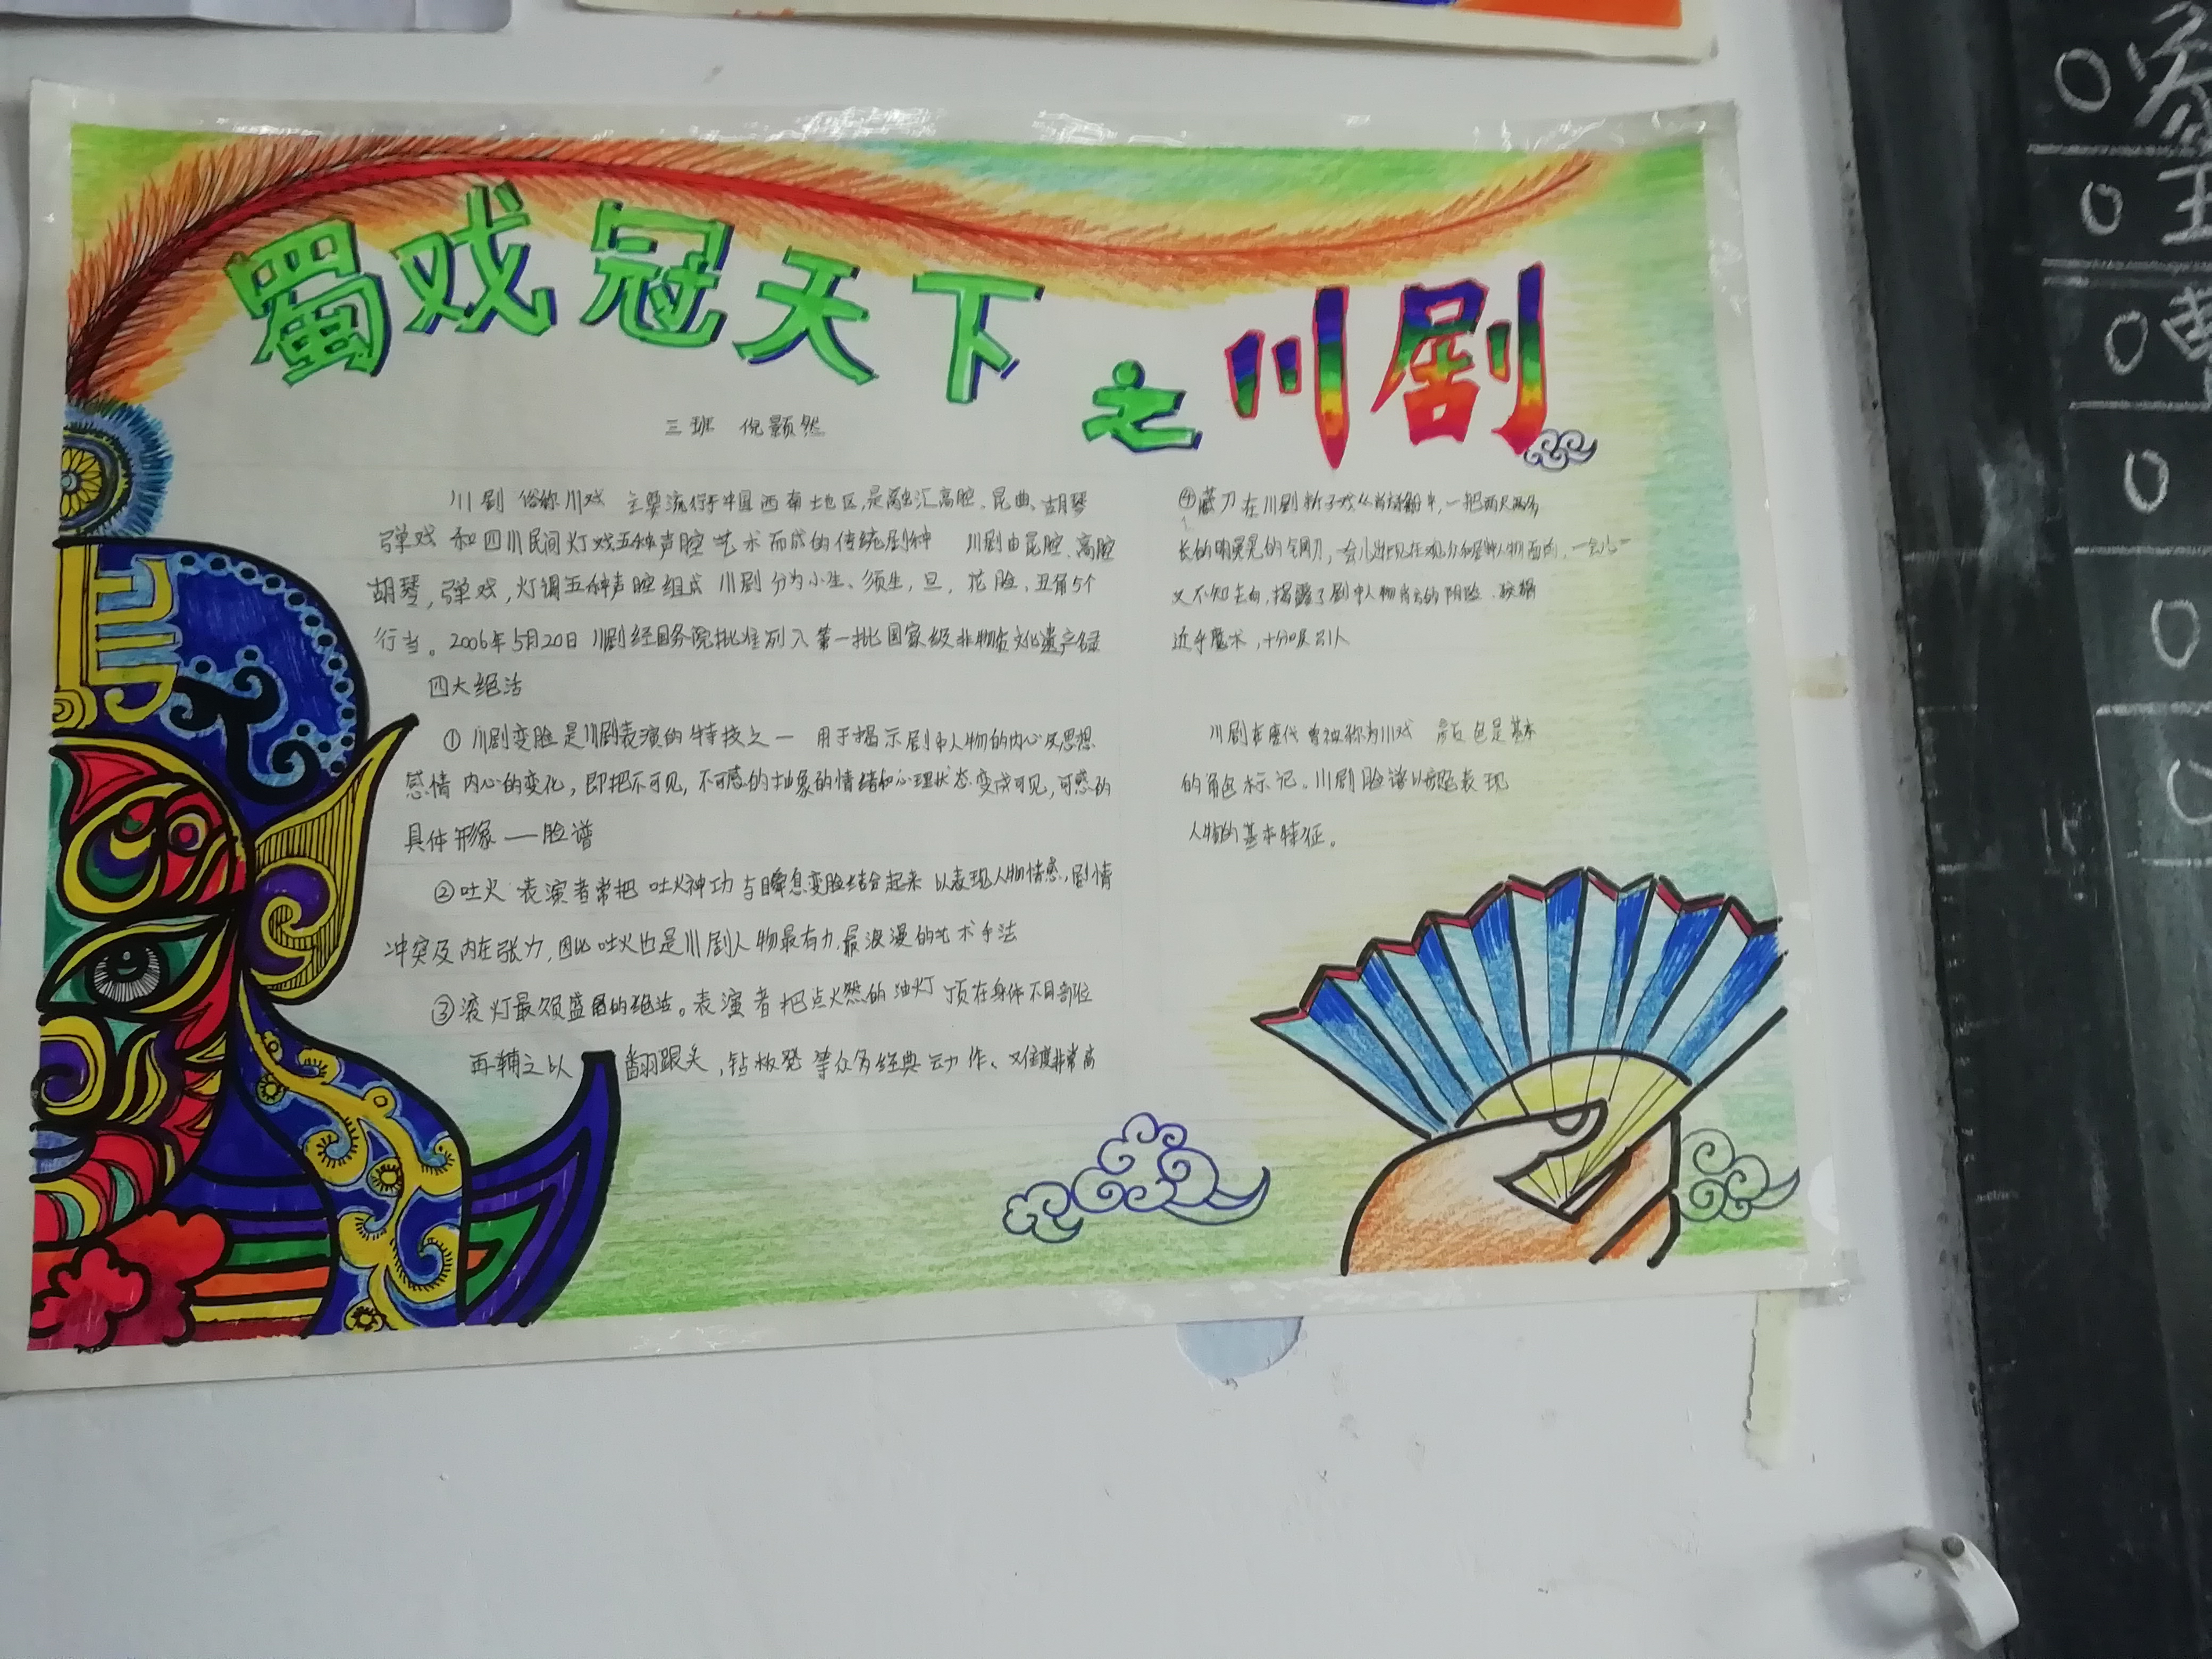 蜀戏冠天下之川剧
三班 倪颢然
川剧 俗称川戏 主要流行于中国西南地区,是融汇高腔、昆曲、胡琴
弹戏 和四川民间灯戏五种声腔艺术而成的传统剧种 川剧由昆腔、高腔
胡琴,弹戏,灯调五种声腔组成 川剧分为小生、须生,旦,花脸,丑角5个
行当。2006年5月20日 川剧经国务院批准列入第一批国家级非物质文化遗产名录
四大绝活
① 川剧变脸是川剧表演的特技之一 用于揭示剧中人物的内心及思想
感情 内心的变化,即把不可见,不可感的抽象的情绪和心理状态变成可见,可感的
具体形象——脸谱
②吐火 表演者常把 吐火神功 与瞬息变脸结合起来 以表现人物情感,剧情
冲突及内在张力,因此吐火也是川剧人物最有力,最浪漫的艺术手法
③滚灯最须盛名的绝活。表演者把点火然的油灯 顶在身体不同部位
再辅之以 翻跟头,钻板凳等众多经典动作、又住度非常高
④藏刀在川剧折子戏 中,一把两尺
长的明晃晃的钢刀,一会儿出现在观众和剧中人物面前,一会儿
又不知去向,揭露了剧中人物 的阴险、狡猾
近乎魔术,十分吸引人
川剧在唐代曾被称为川戏 色是基本
的角色标记。川剧脸谱以 色表现
人物的基本特征。